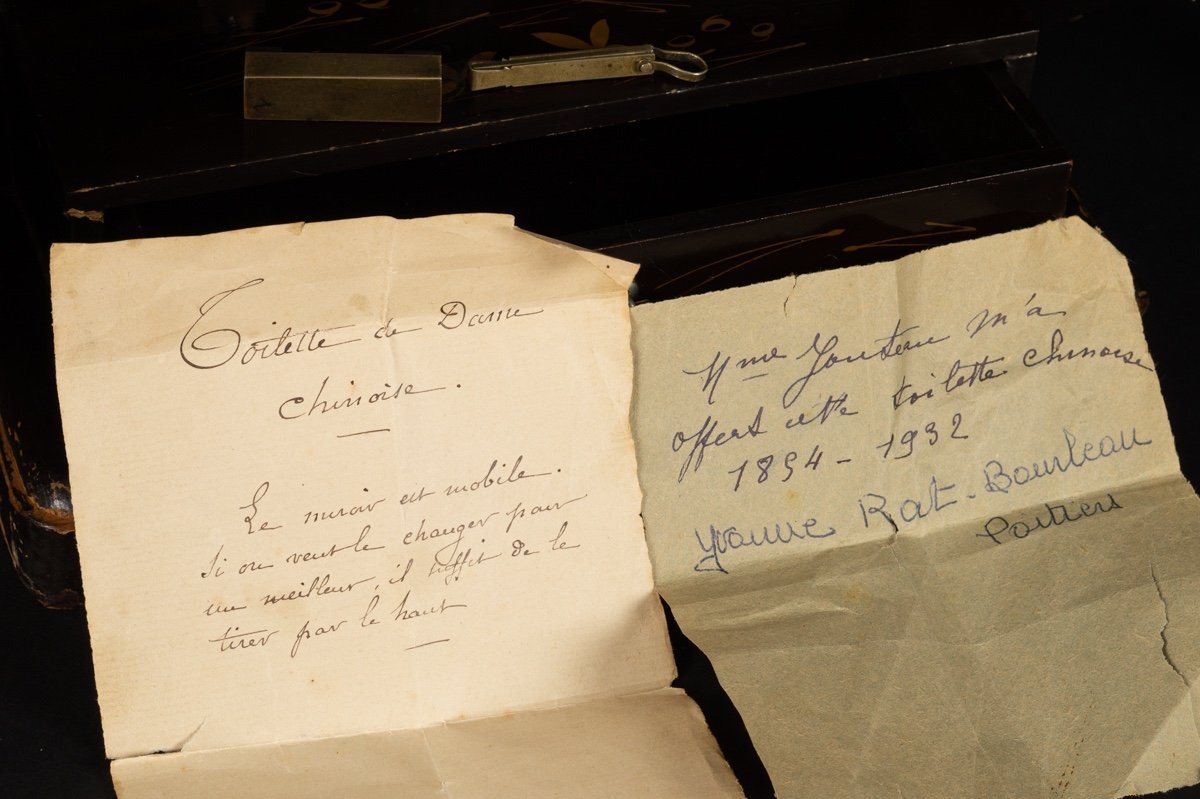 Toilette de Dame
chinoise.
Le miroir est mobile.
Si on veut le changer pour
un meilleur, il suffit de le
tirer par le haut
Mme m'a
offert cette toilette chinoise
1894 - 1932
Yvonne Rat-Bourleau
Poitiers